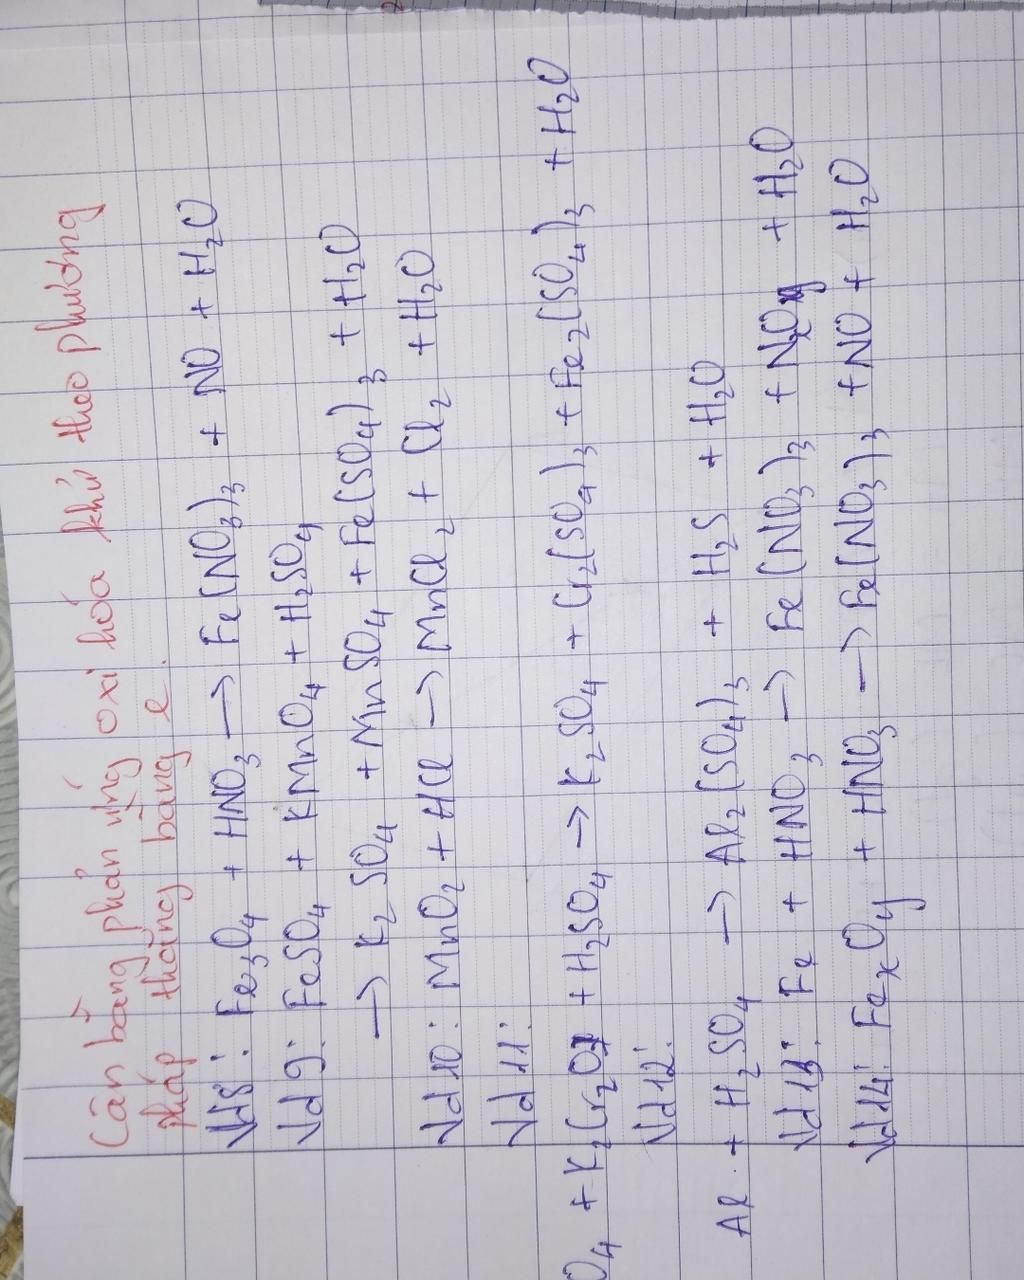 Cân bằng phản ứng oxi hóa khử theo phương
pháp thăng bằng e.
Vd8: Fe₃O₄ + HNO₃ → Fe(NO₃)₃ + NO + H₂O
Vd9: FeSO₄ + KMnO₄ + H₂SO₄
→ K₂SO₄ + MnSO₄ + Fe(SO₄)₃ + H₂O
Vd10: MnO₂ + HCl → MnCl₂ + Cl₂ + H₂O
Vd11:
O₄ + K₂Cr₂O₇ + H₂SO₄ → K₂SO₄ + Cr₂(SO₄)₃ + Fe₂(SO₄)₃ + H₂O
Vd12:
Al + H₂SO₄ → Al₂(SO₄)₃ + H₂S + H₂O
Vd13: Fe + HNO₃ → Fe(NO₃)₃ + + H₂O
Vd14: FeₓOy + HNO₃ → Fe(NO₃)₃ + NO + H₂O